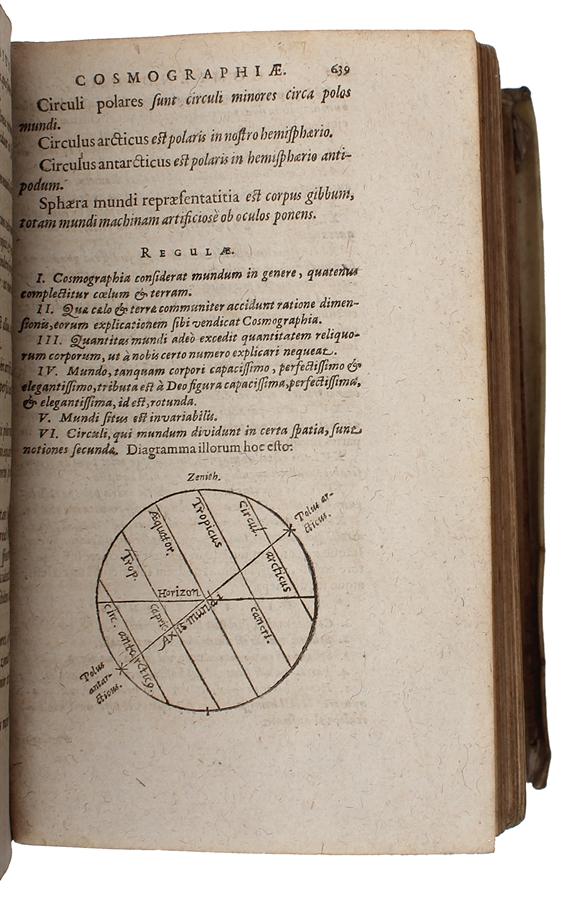 COSMOGRAPHIÆ. 639
Circuli polares ſunt circuli minores circa polos
mundi.
Circulus arcticus eſt polaris in noſtro hemiſphærio.
Circulus antarcticus eſt polaris in hemiſphærio anti-
podum.
Sphæra mundi repræſentatitia eſt corpus gibbum,
totam mundi machinam artificiosè ob oculos ponens.
REGULÆ.
I. Cosmographia conſiderat mundum in genere, quatenus
complectitur cœlum & terram.
II. Quæ cælo & terræ communiter accidunt ratione dimen-
ſionis, eorum explicationem ſibi vendicat Cosmographia.
III. Quantitas mundi adeò excedit quantitatem reliquo-
rum corporum, ut à nobis certo numero explicari nequeat.
IV. Mundo, tanquam corpori capaciſſimo, perfectiſſimo &
elegantiſſimo, tributa eſt à Deo figura capaciſſima, perfectiſſima,
& elegantiſſima, id eſt, rotunda.
V. Mundi ſitus eſt invariabilis.
VI. Circuli, qui mundum dividunt in certa ſpatia, ſunt
notiones ſecundæ. Diagramma illorum hoc eſto:
Zenith.
Polus ar-
cticus.
Circul.
arcticus
Tropicus
cancri.
Æquator.
Trop.
Capric.
Horizon
Axis mundi
circ. antarcticꝰ.
Polus
antar-
cticus.